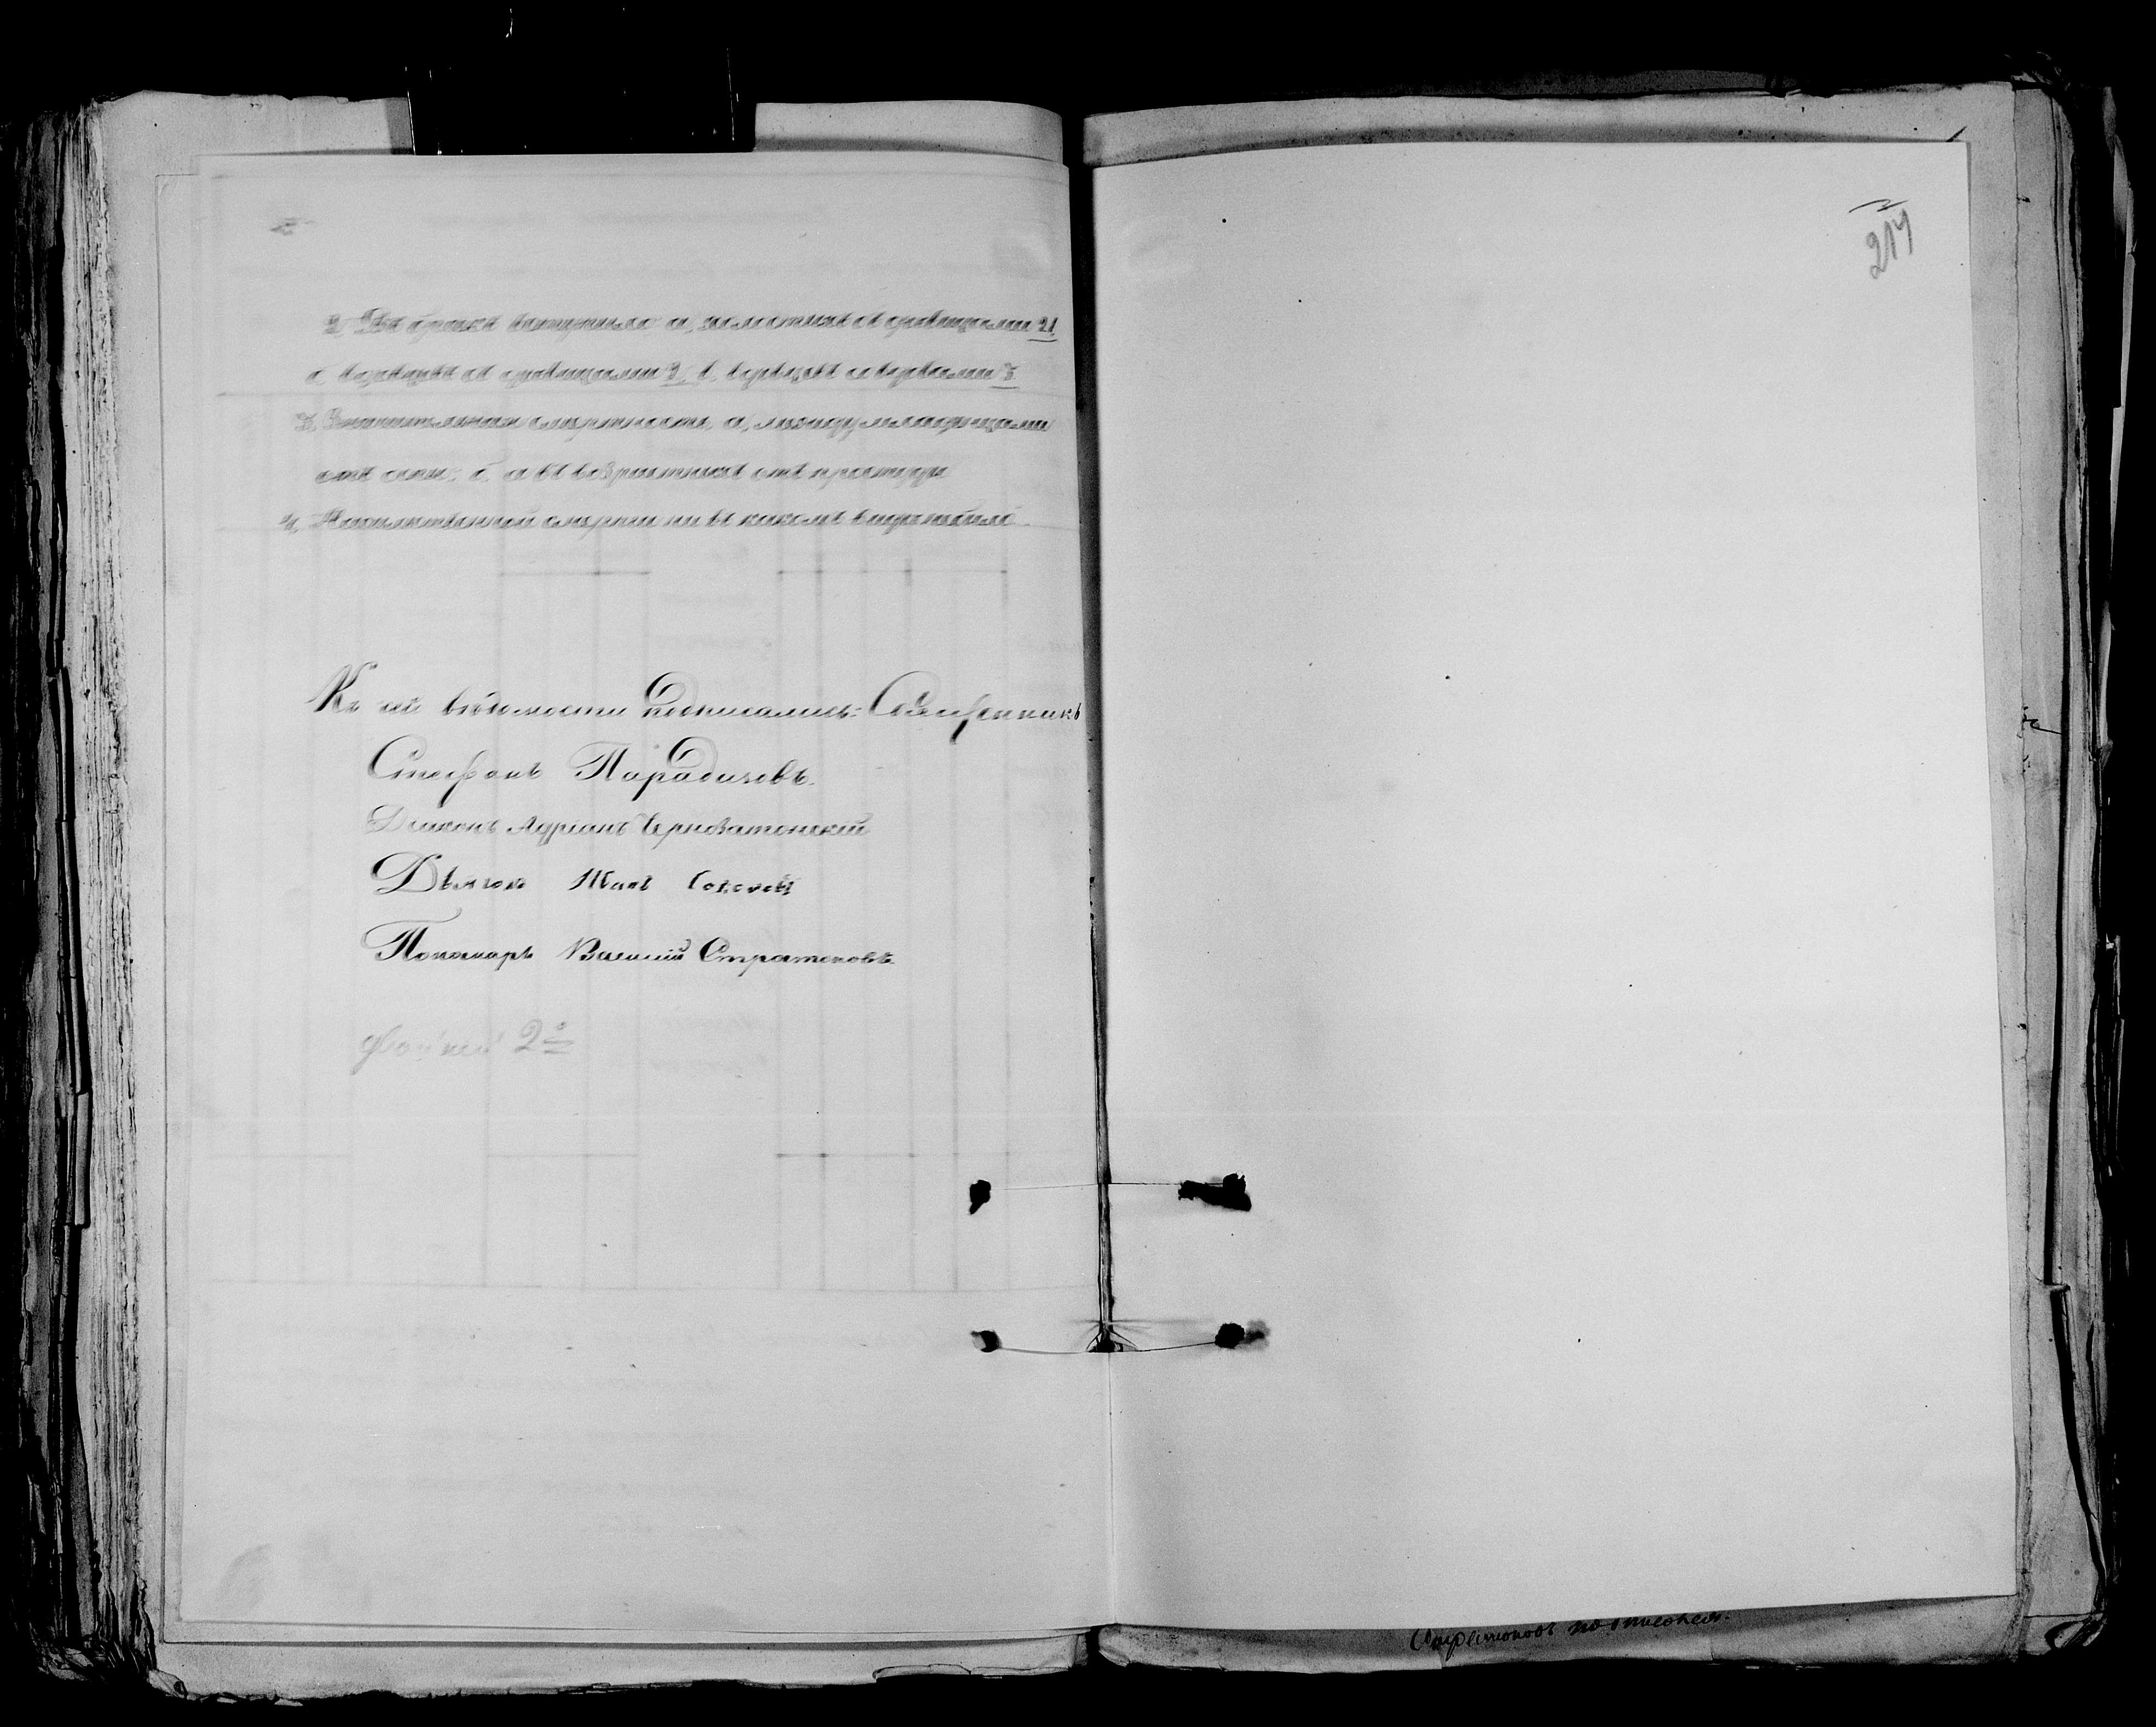 2. Въ бракъ вступило: а, холостыхъ съ дѣвицами 21.
б, вдовцевъ съ дѣвицами 3. в, вдовцевъ со вдовами 3.
3. Значительная смертность, а, между младенцами
отъ оспы; б, а въ возрастныхъ отъ простуды
4, Насильственной смерти ни въ какомъ видѣ не было.
Къ сей вѣдомости подписались: Священникъ
Стефанъ Парадизовъ.
Діаконъ Адріанъ Черноватонскій
Дьячекъ Иванъ Соколовъ
Пономарь Василій Стратоновъ.
2
214
Стратоновъ